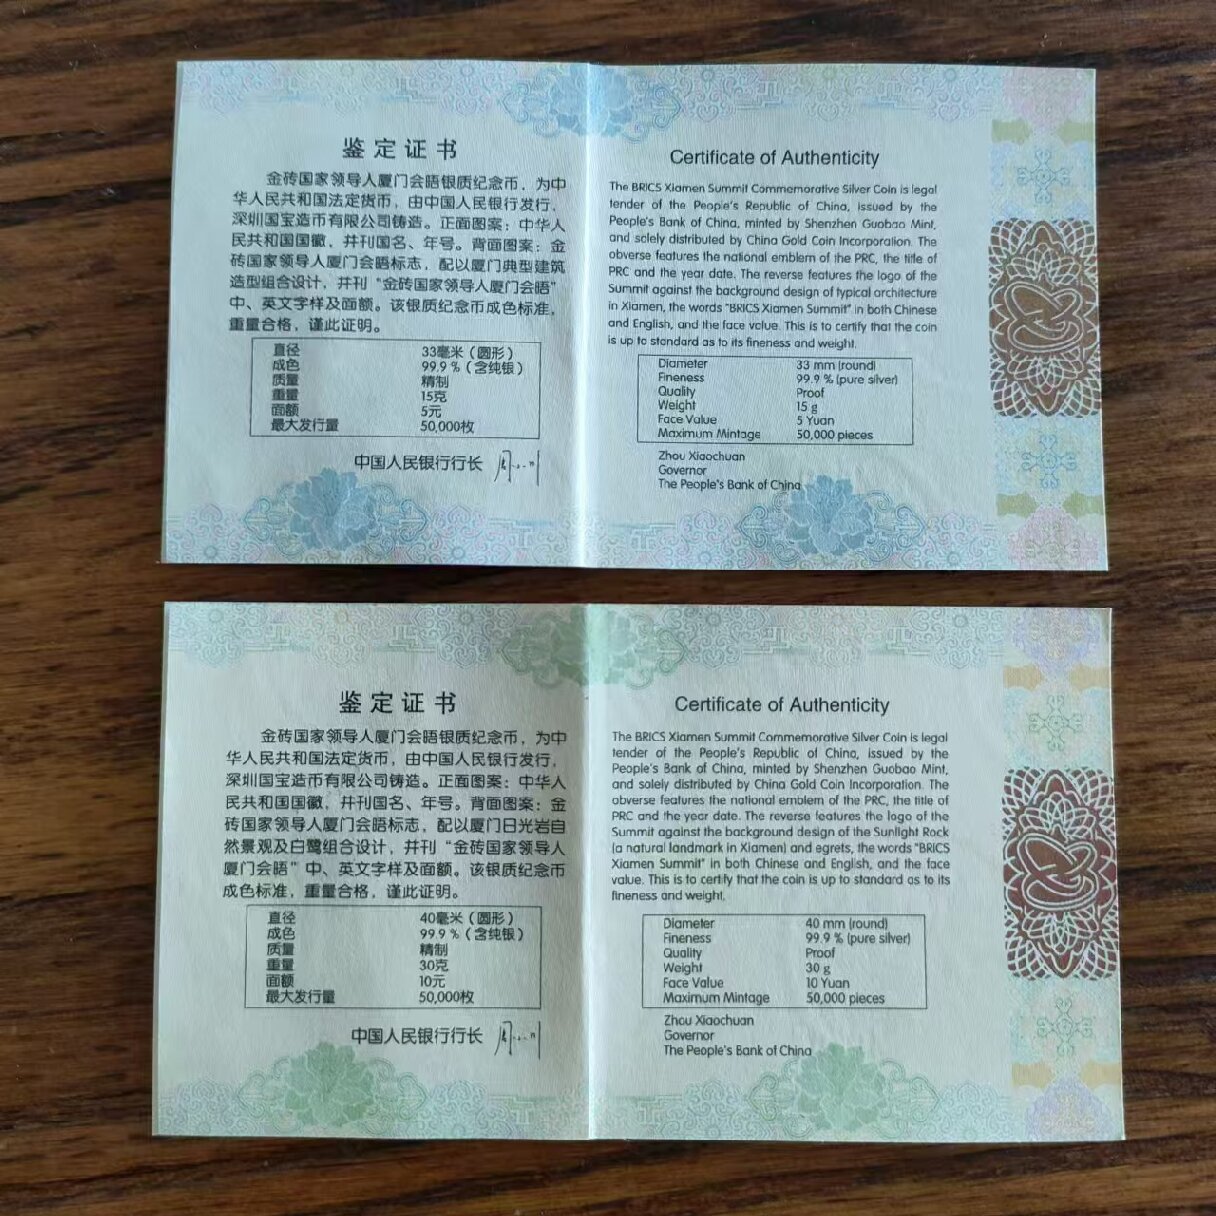 鉴定证书
金砖国家领导人厦门会晤银质纪念币，为中
华人民共和国法定货币，由中国人民银行发行，
深圳国宝造币有限公司铸造。正面图案：中华人
民共和国国徽，并刊国名、年号。背面图案：金
砖国家领导人厦门会晤标志，配以厦门典型建筑
造型组合设计，并刊“金砖国家领导人厦门会晤”
中、英文字样及面额。该银质纪念币成色标准，
重量合格，谨此证明。
直径 33毫米（圆形）
成色 99.9％（含纯银）
质量 精制
重量 15克
面额 5元
最大发行量 50,000枚
中国人民银行行长
Certificate of Authenticity
The BRICS Xiamen Summit Commemorative Silver Coin is legal
tender of the People's Republic of China, issued by the
People's Bank of China, minted by Shenzhen Guobao Mint,
and solely distributed by China Gold Coin Incorporation. The
obverse features the national emblem of the PRC, the title of
PRC and the year date. The reverse features the logo of the
Summit against the background design of typical architecture
in Xiamen, the words "BRICS Xiamen Summit" in both Chinese
and English, and the face value. This is to certify that the coin
is up to standard as to its fineness and weight.
Diameter 33 mm (round)
Fineness 99.9 % (pure silver)
Quality Proof
Weight 15 g
Face Value 5 Yuan
Maximum Mintage 50,000 pieces
Zhou Xiaochuan
Governor
The People's Bank of China
鉴定证书
金砖国家领导人厦门会晤银质纪念币，为中
华人民共和国法定货币，由中国人民银行发行，
深圳国宝造币有限公司铸造。正面图案：中华人
民共和国国徽，并刊国名、年号。背面图案：金
砖国家领导人厦门会晤标志，配以厦门日光岩自
然景观及白鹭组合设计，并刊“金砖国家领导人
厦门会晤”中、英文字样及面额。该银质纪念币
成色标准，重量合格，谨此证明。
直径 40毫米（圆形）
成色 99.9％（含纯银）
质量 精制
重量 30克
面额 10元
最大发行量 50,000枚
中国人民银行行长
Certificate of Authenticity
The BRICS Xiamen Summit Commemorative Silver Coin is legal
tender of the People's Republic of China, issued by the
People's Bank of China, minted by Shenzhen Guobao Mint,
and solely distributed by China Gold Coin Incorporation. The
obverse features the national emblem of the PRC, the title of
PRC and the year date. The reverse features the logo of the
Summit against the background design of the Sunlight Rock
(a natural landmark in Xiamen) and egrets, the words "BRICS
Xiamen Summit" in both Chinese and English, and the face
value. This is to certify that the coin is up to standard as to its
fineness and weight.
Diameter 40 mm (round)
Fineness 99.9 % (pure silver)
Quality Proof
Weight 30 g
Face Value 10 Yuan
Maximum Mintage 50,000 pieces
Zhou Xiaochuan
Governor
The People's Bank of China